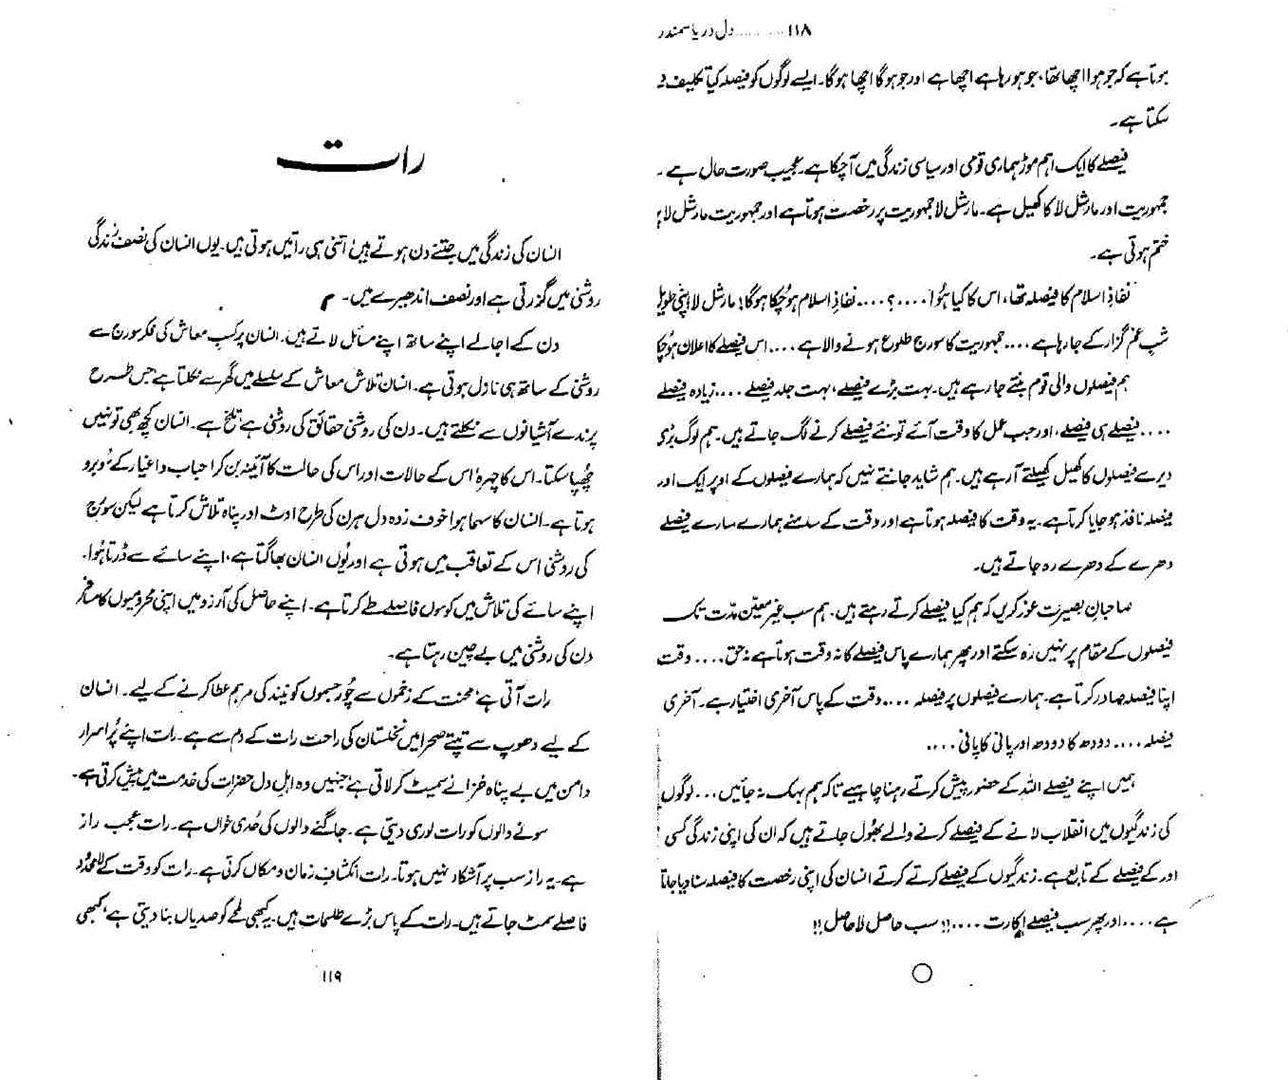 ۱۱۸ ............ دل دریا سمندر
ہوتا ہے کہ جو ہوا اچھا تھا، جو ہو رہا ہے اچھا ہے اور جو ہو گا اچھا ہو گا۔ ایسے لوگوں کو فیصلہ کیا تکلیف د
سکتا ہے۔
فیصلے کا ایک اہم موڑ ہماری قومی اور سیاسی زندگی میں آ چکا ہے۔ عجیب صورت حال ہے ۔
جمہوریت اور مارشل لا کا کھیل ہے۔ مارشل لا جمہوریت پر رخصت ہوتا ہے اور جمہوریت مارشل لا پر
ختم ہوتی ہے۔
نفاذِ اسلام کا فیصلہ تھا، اس کا کیا ہُوا ....؟ .... نفاذِ اسلام ہو چُکا ہو گا! مارشل لا اپنی طویل
شبِ غم گزار کے جا رہا ہے .... جمہوریت کا سورج طلوع ہونے والا ہے .... اس فیصلے کا اعلان ہو چُکا
ہم فیصلوں والی قوم بنتے جا رہے ہیں۔ بہت بڑے فیصلے، بہت جلد فیصلے .... زیادہ فیصلے
.... فیصلے ہی فیصلے، اور جب عمل کا وقت آئے تو نئے فیصلے کرنے لگ جاتے ہیں۔ ہم لوگ بڑی
دیر سے فیصلوں کا کھیل کھیلتے آ رہے ہیں۔ ہم شاید جانتے نہیں کہ ہمارے فیصلوں کے اوپر ایک اور
فیصلہ نافذ ہو جایا کرتا ہے۔ یہ وقت کا فیصلہ ہوتا ہے اور وقت کے سامنے ہمارے سارے فیصلے
دھرے کے دھرے رہ جاتے ہیں۔
صاحبانِ بصیرت غور کریں کہ ہم کیا فیصلے کرتے رہتے ہیں۔ ہم سب غیر معیّن مدّت تک
فیصلوں کے مقام پر نہیں رہ سکتے اور پھر ہمارے پاس فیصلے کا نہ وقت ہوتا ہے نہ حق .... وقت
اپنا فیصلہ صادر کرتا ہے۔ ہمارے فیصلوں پر فیصلہ .... وقت کے پاس آخری اختیار ہے۔ آخری
فیصلہ .... دودھ کا دودھ اور پانی کا پانی ....
ہمیں اپنے فیصلے اللہ کے حضور پیش کرتے رہنا چاہیے تاکہ ہم بہک نہ جائیں ... لوگوں
کی زندگیوں میں انقلاب لانے کے فیصلے کرنے والے بھُول جاتے ہیں کہ ان کی اپنی زندگی کسی
اور کے فیصلے کے تابع ہے۔ زندگیوں کے فیصلے کرتے کرتے انسان کی اپنی رخصت کا فیصلہ سنا دیا جاتا
ہے .... اور پھر سب فیصلے اکارت ....!! سب حاصل لاحاصل!!
رات
انسان کی زندگی میں جتنے دن ہوتے ہیں، اتنی ہی راتیں ہوتی ہیں۔ یوں انسان کی نصف زندگی
روشنی میں گزرتی ہے اور نصف اندھیرے میں۔
دن کے اجالے اپنے ساتھ اپنے مسائل لاتے ہیں۔ انسان پر کسبِ معاش کی فکر سورج سے
روشنی کے ساتھ ہی نازل ہوتی ہے۔ انسان تلاشِ معاش کے سلسلے میں گھر سے نکلتا ہے جس طرح
پرندے آشیانوں سے نکلتے ہیں۔ دن کی روشنی حقائق کی روشنی ہے، تلخ ہے۔ انسان کچھ بھی تو نہیں
چھُپا سکتا۔ اس کا چہرہ اس کے حالات اور اس کی حالت کا آئینہ بن کر احباب و اغیار کے رُوبرو
ہوتا ہے۔ انسان کا سہما ہوا خوف زدہ دل ہرن کی طرح اوٹ اور پناہ تلاش کرتا ہے لیکن سورج
کی روشنی اس کے تعاقب میں ہوتی ہے اور یُوں انسان بھاگتا ہے، اپنے سائے سے ڈرتا ہُوا۔
اپنے سائے کی تلاش میں کوسوں فاصلے طے کرتا ہے۔ اپنے حاصل کی آرزو میں اپنی محرومیوں کا مسافر
دن کی روشنی میں بے چین رہتا ہے۔
رات آتی ہے، محنت کے زخموں سے چُور جسموں کو نیند کی مرہم عطا کرنے کے لیے۔ انسان
کے لیے دھوپ سے تپتے صحرا میں نخلستان کی راحت رات کے دم سے ہے۔ رات اپنے پُراسرار
دامن میں بے پناہ خزانے سمیٹ کر لاتی ہے، جنہیں وہ اہلِ دل حضرات کی خدمت میں پیش کرتی ہے۔
سونے والوں کو رات لوری دیتی ہے۔ جاگنے والوں کی حُدی خواں ہے۔ رات عجب راز
ہے۔ یہ راز سب پر آشکار نہیں ہوتا۔ رات انکشافِ زمان و مکاں کرتی ہے۔ رات کو وقت کے لامحدُود
فاصلے سمٹ جاتے ہیں۔ رات کے پاس بڑے طلسمات ہیں۔ یہ کبھی لمحے کو صدیاں بنا دیتی ہے، کبھی
۱۱۹